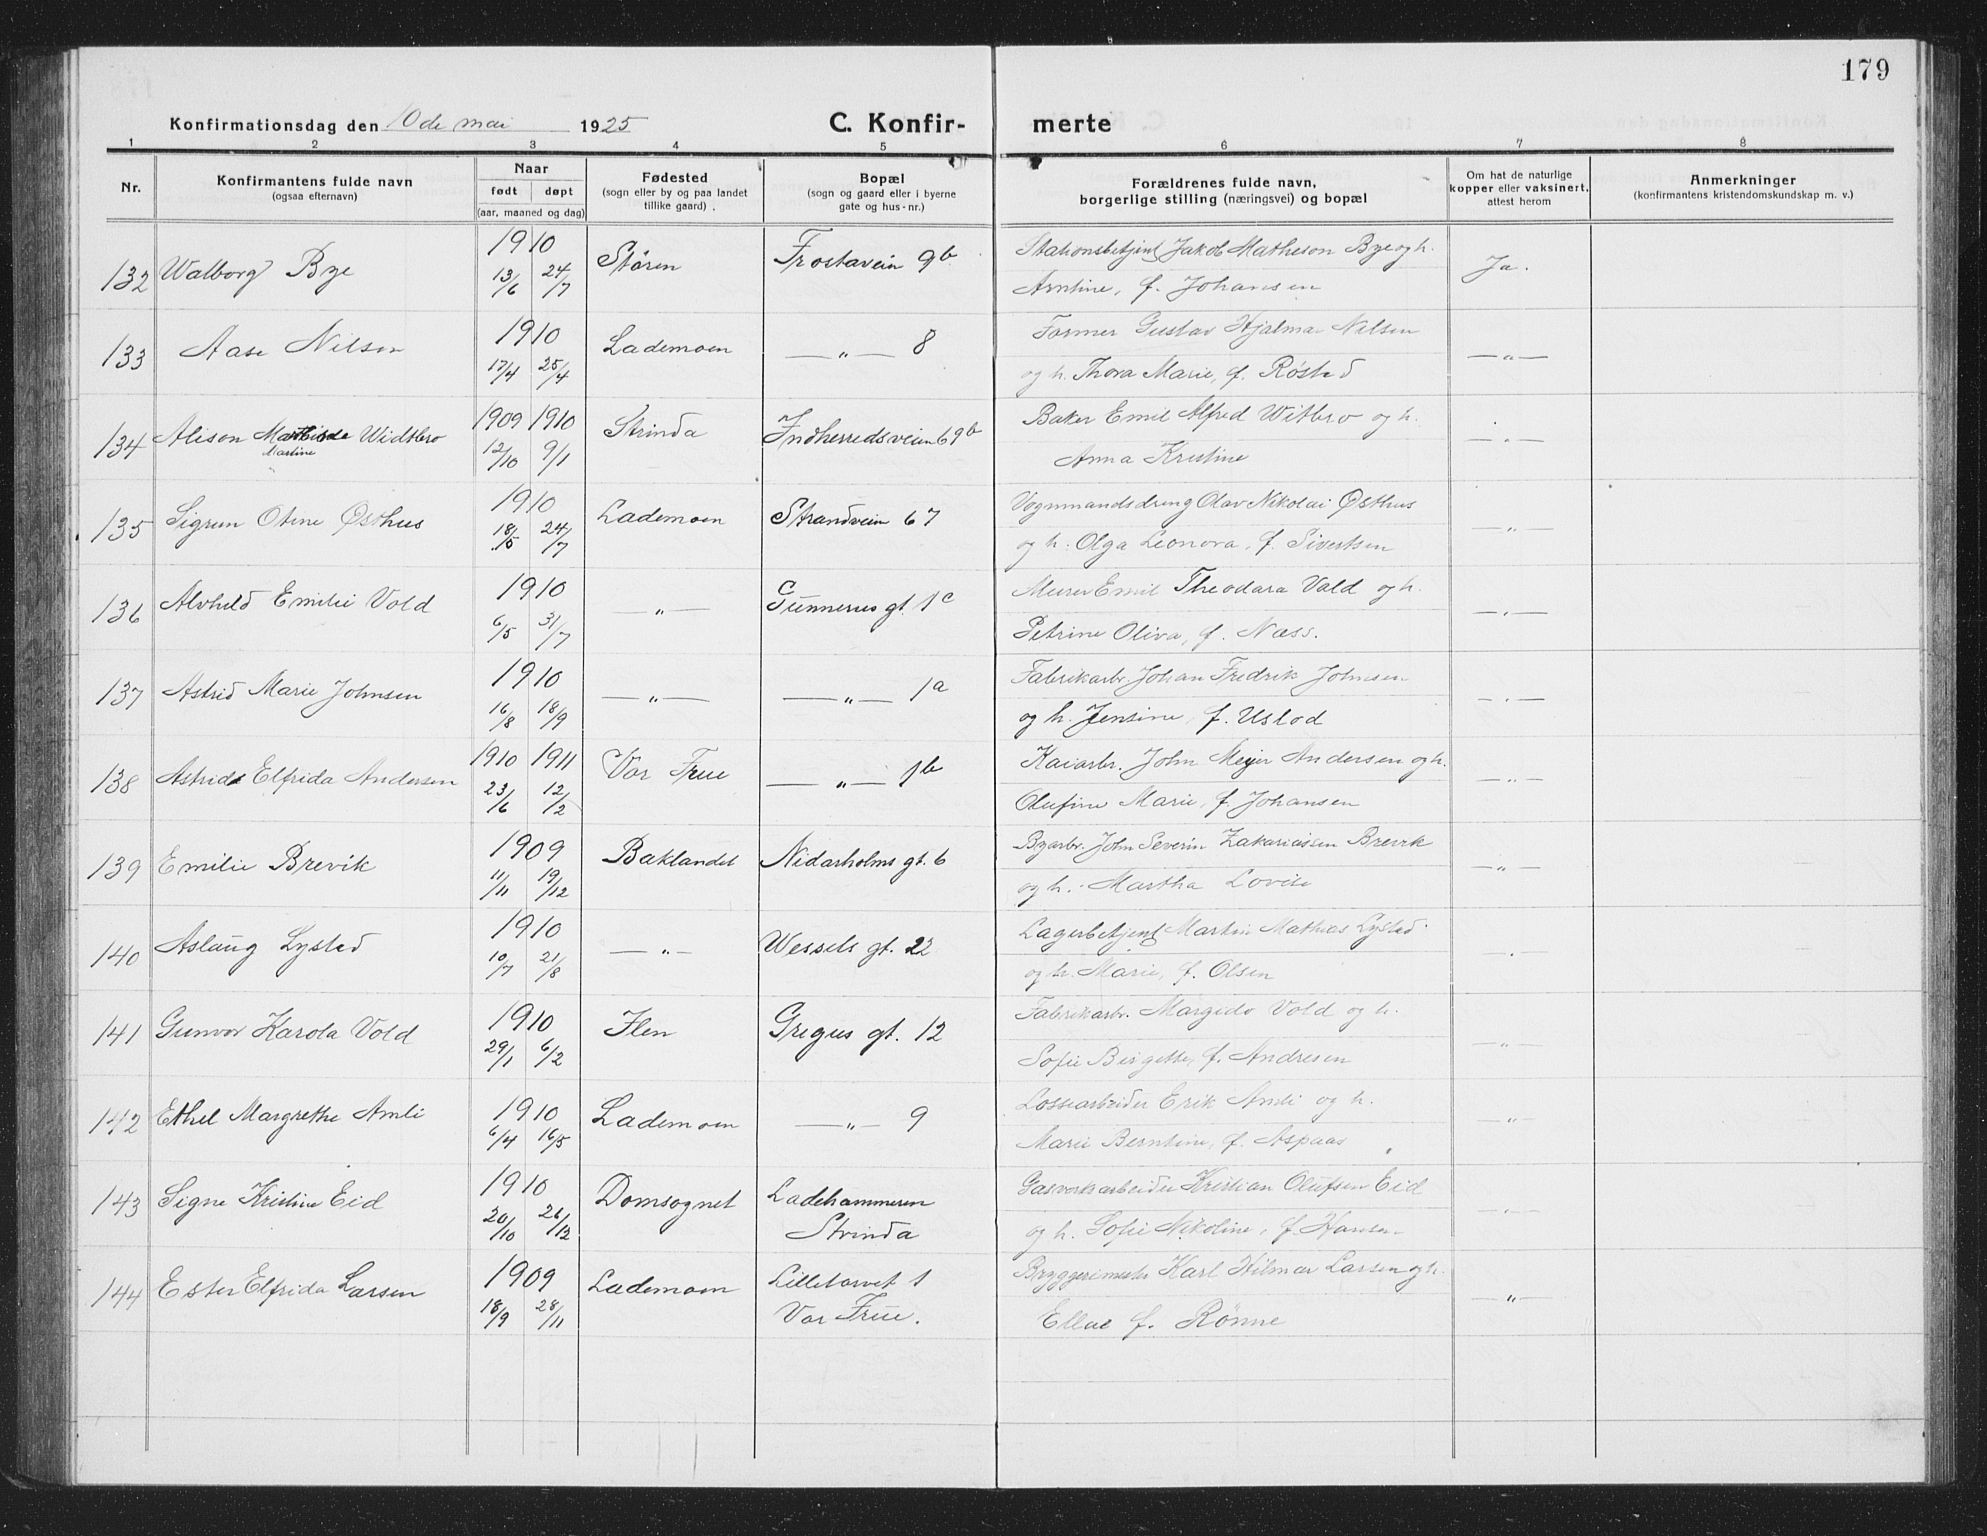 179
Konfirmationsdag den 10de mai 1925
C. Konfir-
merte
1 2 3 4 5 6 7 8
Nr.
Konfirmantens fulde navn
(ogsaa efternavn)
Naar
født døpt
(aar, maaned og dag)
Fødested
(sogn eller by og paa landet
tillike gaard).
Bopæl
(sogn og gaard eller i byerne
gate og hus-nr.)
Forældrenes fulde navn,
borgerlige stilling (næringsvei) og bopæl
Om hat de naturlige
kopper eller vaksinert,
attest herom
Anmerkninger
(konfirmantens kristendomskundskap m. v.)
132 Walborg Bye 1910 13/6 24/7 Stören Frostavein 9b Stationsbetjent Jakob Matheson Bye og h.
Arntine, f. Johansen Ja.
133 Aase Nilsen 1910 17/4 25/4 Lademoen —„— 8 Former Gustav Hjalmar Nilsen
og h. Thora Marie, f. Røstad —„—
134 Alison Widtbro 1909 1910 12/10 9/1 Strinda Indherredsveien 69b Baker Emil Alfred Witbro og h.
Martine
Anna Kristine —„—
135 Sigrun Otine Østhus 1910 18/5 24/7 Lademoen Strandvein 67 Vognmandsdreng Olav Nikolai Østhus
og h. Olga Leonora, f. Sivertsen —„—
136 Alvhild Emilie Vold 1910 6/5 31/7 —„— Gunnerus gt. 1c Murer Emil Theodara Vald og h.
Petrine Oliva, f. Næss. —„—
137 Astrid Marie Johnsen 1910 16/8 18/9 —„— —„— 1a Fabrikarb. Johan Fredrik Johnsen
og h. Jensine, f. Uslod —„—
138 Astrid Elfrida Andersen 1910 1911 23/6 12/2 Vor Frue —„— 1b Kaiarbr. John Meyer Andersen og h.
Olufine Marie, f. Johansen —„—
139 Emilie Brevik 1909 11/11 19/12 Baklandet Nidarholms gt. 6 Byarbr. John Severin Zakariassen Brevik
og h. Martha Lovise —„—
140 Aslaug Lysted 1910 10/7 21/8 —„— Wessels gt. 22 Lagerbetjent Martin Mathias Lysted
og h. Marie, f. Olsen —„—
141 Gunvor Karola Vold 1910 29/1 6/2 Ilen Gregus gt. 12 Fabrikarbr. Margido Vold og h.
Sofie Birgette, f. Andresen —„—
142 Ethel Margrethe Amli 1910 6/4 16/5 Lademoen —„— 9 Lossearbeider Erik Amli og h.
Marie Berntine, f. Aspaas —„—
143 Signe Kristine Eid 1910 20/10 26/12 Domsognet Ladehammeren
Strinda Gasverksarbeider Kristian Olufsen Eid
og h. Sofie Nikoline, f. Hansen —„—
144 Ester Elfrida Larsen 1909 18/9 28/11 Lademoen Lilletorvet 1
Vor Frue. Bryggerimester Karl Hilmar Larsen og h.
Ellae f. Rönne —„—